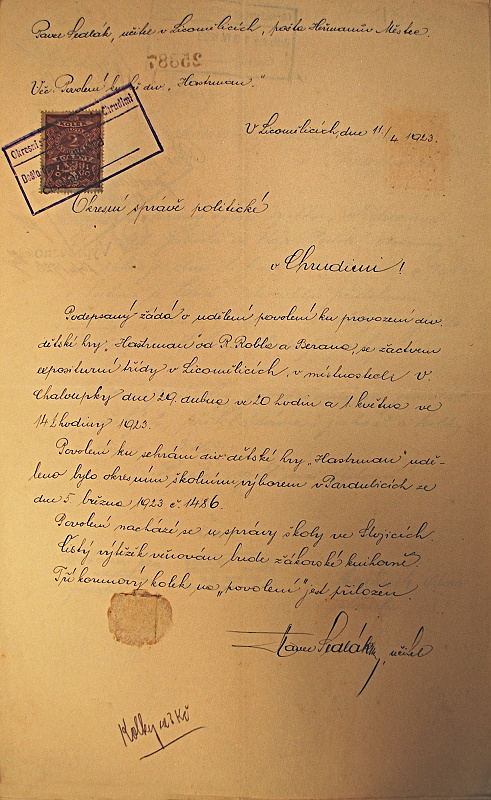 Pavel Sedlák, učitel v Licoměřicích, pošta Heřmanův Městec.
25387
Věc: Povolení ku hře div. „Hastrman."
V Licoměřicích, dne 11/4 1923.
Okresní Chrudimi
Došlo
Okresní správě politické
v Chrudimi!
Podepsaný žádá o udělení povolení ku provození div.
dětské hry „Hastrman" od R. Rabla a Berana, se žactvem
expositurní třídy v Licoměřicích, v místnostech V.
Chaloupky dne 29. dubna ve 20 hodin a 1. května ve
14 hodiny 1923.
Povolení ku sehrání div. dětské hry „Hastrman" udě-
leno bylo okresním školním výborem v Pardubicích ze
dne 5. března 1923 č. 1486.
Povolení nachází se u správy školy ve Stojicích.
Čistý výtěžek věnován bude žákovské knihovně.
Tříkorunový kolek na „povolení" jest přiložen.
Pavel Sedlák, učitel
Kolky